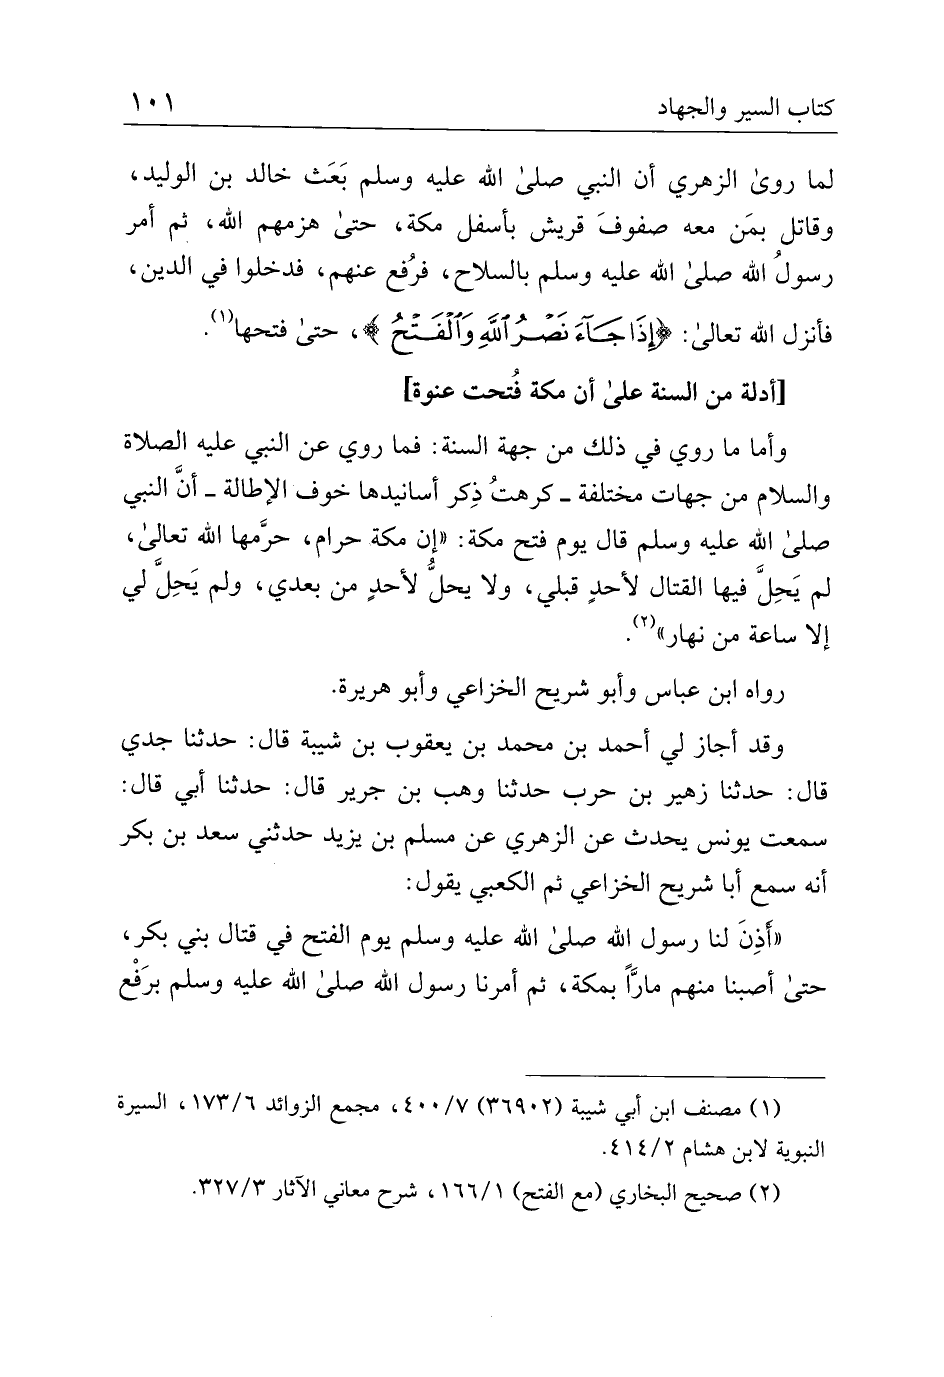 كتاب السير والجهاد ١٠١
لما روىٰ الزهري أن النبي صلىٰ الله عليه وسلم بَعَث خالد بن الوليد،
وقاتل بمَن معه صفوفَ قريش بأسفل مكة، حتىٰ هزمهم الله، ثم أمر
رسولُ الله صلىٰ الله عليه وسلم بالسلاح، فرُفع عنهم، فدخلوا في الدين،
فأنزل الله تعالىٰ: ﴿إِذَا جَآءَ نَصْرُ ٱللَّهِ وَٱلْفَتْحُ﴾، حتىٰ فتحها(١).
[أدلة من السنة علىٰ أن مكة فُتحت عنوة]
وأما ما روي في ذلك من جهة السنة: فما روي عن النبي عليه الصلاة
والسلام من جهات مختلفة ـ كرهتُ ذِكر أسانيدها خوف الإطالة ـ أنَّ النبي
صلىٰ الله عليه وسلم قال يوم فتح مكة: «إن مكة حرام، حرَّمها الله تعالىٰ،
لم يَحِلَّ فيها القتال لأحدٍ قبلي، ولا يحلُّ لأحدٍ من بعدي، ولم يَحِلَّ لي
إلا ساعة من نهار»(٢).
رواه ابن عباس وأبو شريح الخزاعي وأبو هريرة.
وقد أجاز لي أحمد بن محمد بن يعقوب بن شيبة قال: حدثنا جدي
قال: حدثنا زهير بن حرب حدثنا وهب بن جرير قال: حدثنا أبي قال:
سمعت يونس يحدث عن الزهري عن مسلم بن يزيد حدثني سعد بن بكر
أنه سمع أبا شريح الخزاعي ثم الكعبي يقول:
«أَذِنَ لنا رسول الله صلىٰ الله عليه وسلم يوم الفتح في قتال بني بكر،
حتىٰ أصبنا منهم مارَّاً بمكة، ثم أمرنا رسول الله صلىٰ الله عليه وسلم برَفْع
(١) مصنف ابن أبي شيبة (٣٦٩٠٢) ٤٠٠/٧، مجمع الزوائد ١٧٣/٦، السيرة
النبوية لابن هشام ٤١٤/٢.
(٢) صحيح البخاري (مع الفتح) ١٦٦/١، شرح معاني الآثار ٣٢٧/٣.